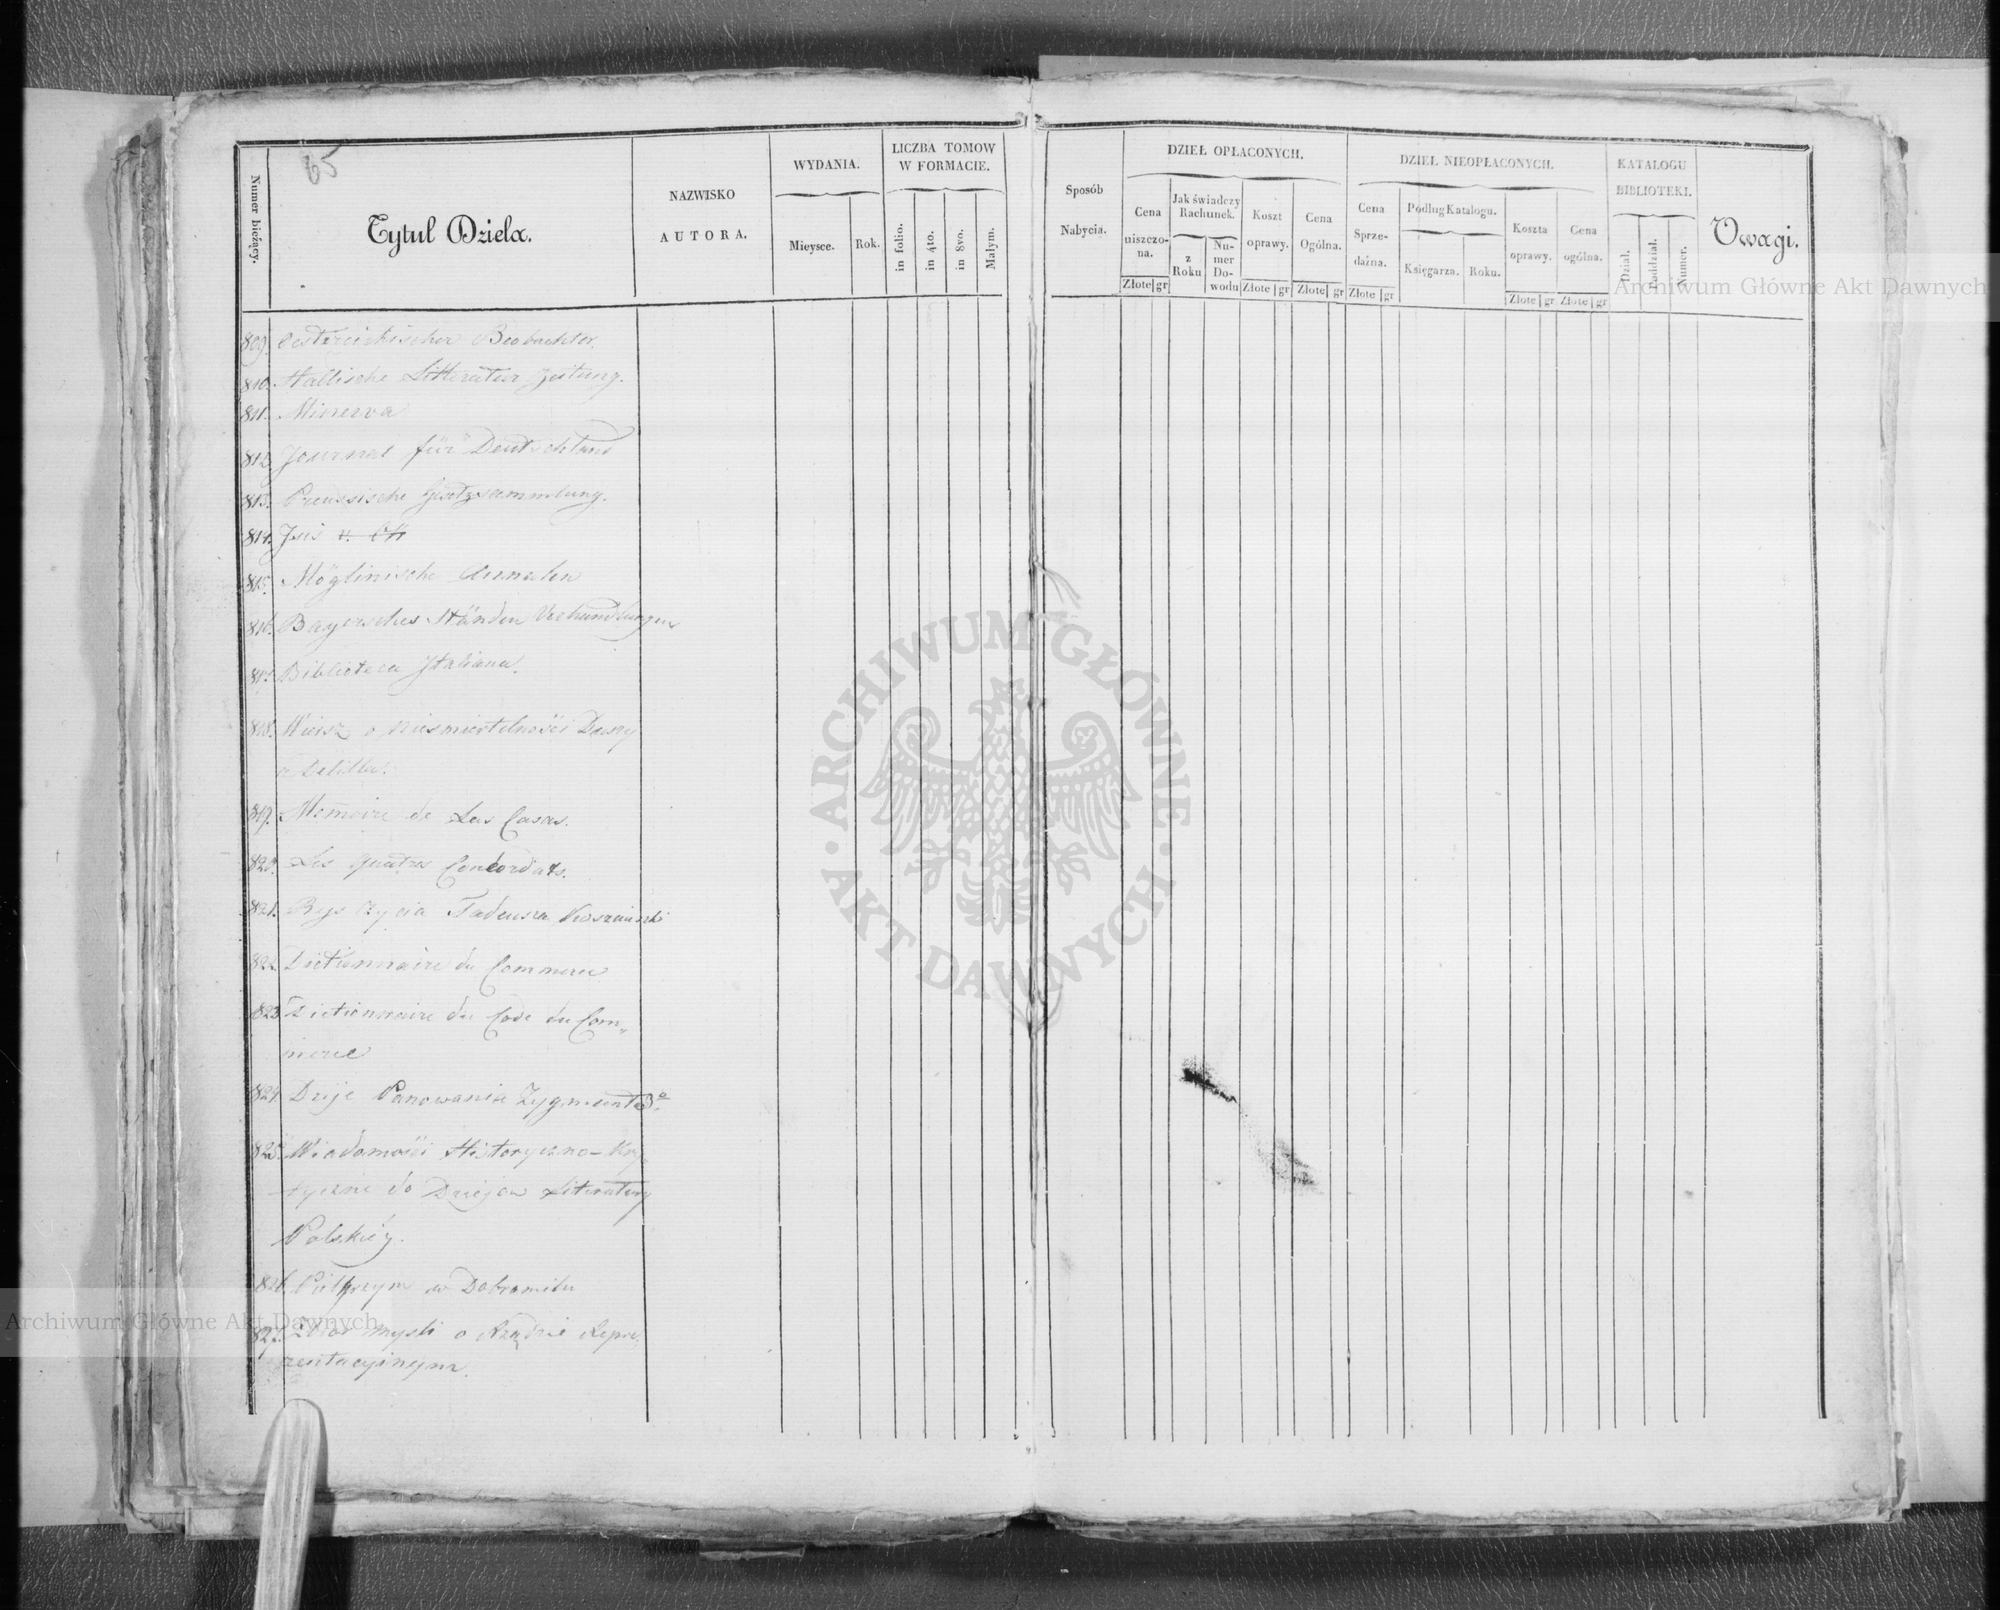 65
Numer bieżący.
Tytuł Dzieła.
NAZWISKO
AUTORA.
WYDANIA.
Mieysce.
Rok.
LICZBA TOMOW
W FORMACIE.
in folio.
in 4to.
in 8vo.
Małym.
Sposób
Nabycia.
DZIEŁ OPŁACONYCH.
Cena
uiszczo-
na.
Złote gr
Jak świadczy
Rachunek.
z
Roku
Nu-
mer
Do-
wodu
Koszt
oprawy.
Złote gr
Cena
Ogólna.
Złote gr
DZIEŁ NIEOPŁACONYCH.
Cena
Sprze-
dażna.
Złote gr
Podług Katalogu.
Księgarza.
Roku.
Koszta
oprawy.
Złote gr
Cena
ogólna.
Złote gr
KATALOGU
BIBLIOTEKI.
Dział.
Poddział.
Numer.
Uwagi.
809. Oestreichischer Beobachter.
810. Hallische Litteratur Zeitung.
811. Minerva
812. Journal für Deutschland
813. Preussische Gesetzsammlung.
814. Isis v.
815. Möglinische Annalen
816. Bayersches Stände Verhandlungen
817. Biblioteca Italiana.
818. Wiersz o nieśmiertelności Duszy
z Delilla.
819. Memoire de Las Casas.
820. Les quatres Concordats.
821. Rys życia Tadeusza Kosciuszki
822. Dictionnaire du Commerce
823. Dictionnaire du Code du Com„
merce
824. Dzije Panowania Zygmunta 3o
825. Wiadomości Historyczno-Kry„
tyczne do Dziejow Literatury
Polskiéy.
826. Pielgrzym w Dobromilu
827. Zbior mysli o Rządzie Repre„
zentacyinym.
ARCHIWUM GŁÓWNE
AKT DAWNYCH
Archiwum Główne Akt Dawnych
Archiwum Główne Akt Dawnych